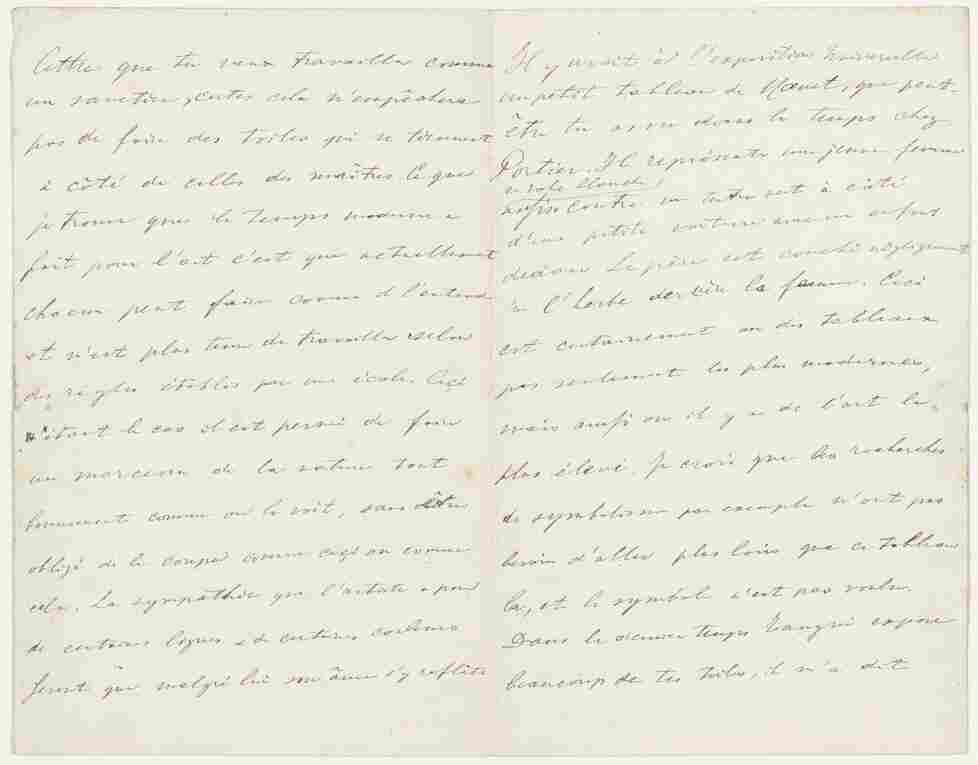 lettre que tu veux travailler comme
un ; certes cela n'empêchera
pas de faire des toiles qui se tiennent
à côté de celles des maîtres. Ce que
je trouve que le temps moderne a
fait pour l'art c'est que actuellement
chacun peut faire comme il l'entend
et n'est plus tenu de travailler selon
des règles établies par une école. Ceci
étant le cas il est permis de faire
un morceau de la nature tout
bonnement comme on le voit, sans être
obligé de le couper comme ceci ou comme
cela. La sympathie que l'artiste a pour
de certaines lignes & de certaines couleurs
feront que malgré lui son âme s'y reflète
Il y avait à l'exposition Universelle
un petit tableau de Manet, que peut-
être tu as vu dans le temps chez
Portier. Il représente une jeune femme
en robe blanche,
assise contre un tertre vert à côté
d'une petite voiture avec un enfant
dedans. Le père est couché négligemment
ds l'herbe derrière la femme. Ceci
est certainement un des tableaux
pas seulement les plus modernes,
mais aussi ou il y a de l'art le
plus élevé. Je crois que les recherches
de symbolisme par exemple n'ont pas
besoin d'aller plus loin que ce tableau
là, et le symbole n'est pas voulu.
Dans le dernier temps Tanguy expose
beaucoup de tes toiles, il m'a dit